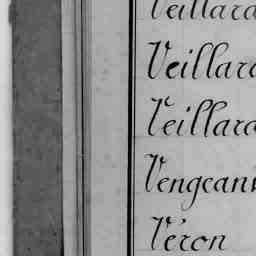 Veillard
Veillard
Veillard
Vengeant
Véron